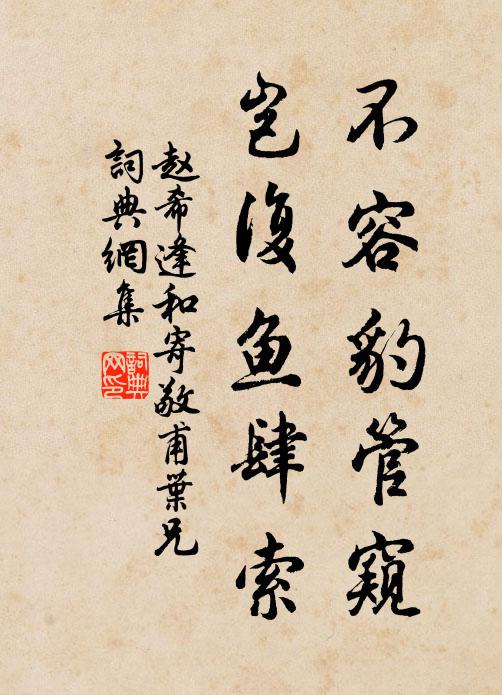 不容豹管窥
岂復鱼肆索
赵希逢和寄敬甫葉兄
詞典網集
詞典网印